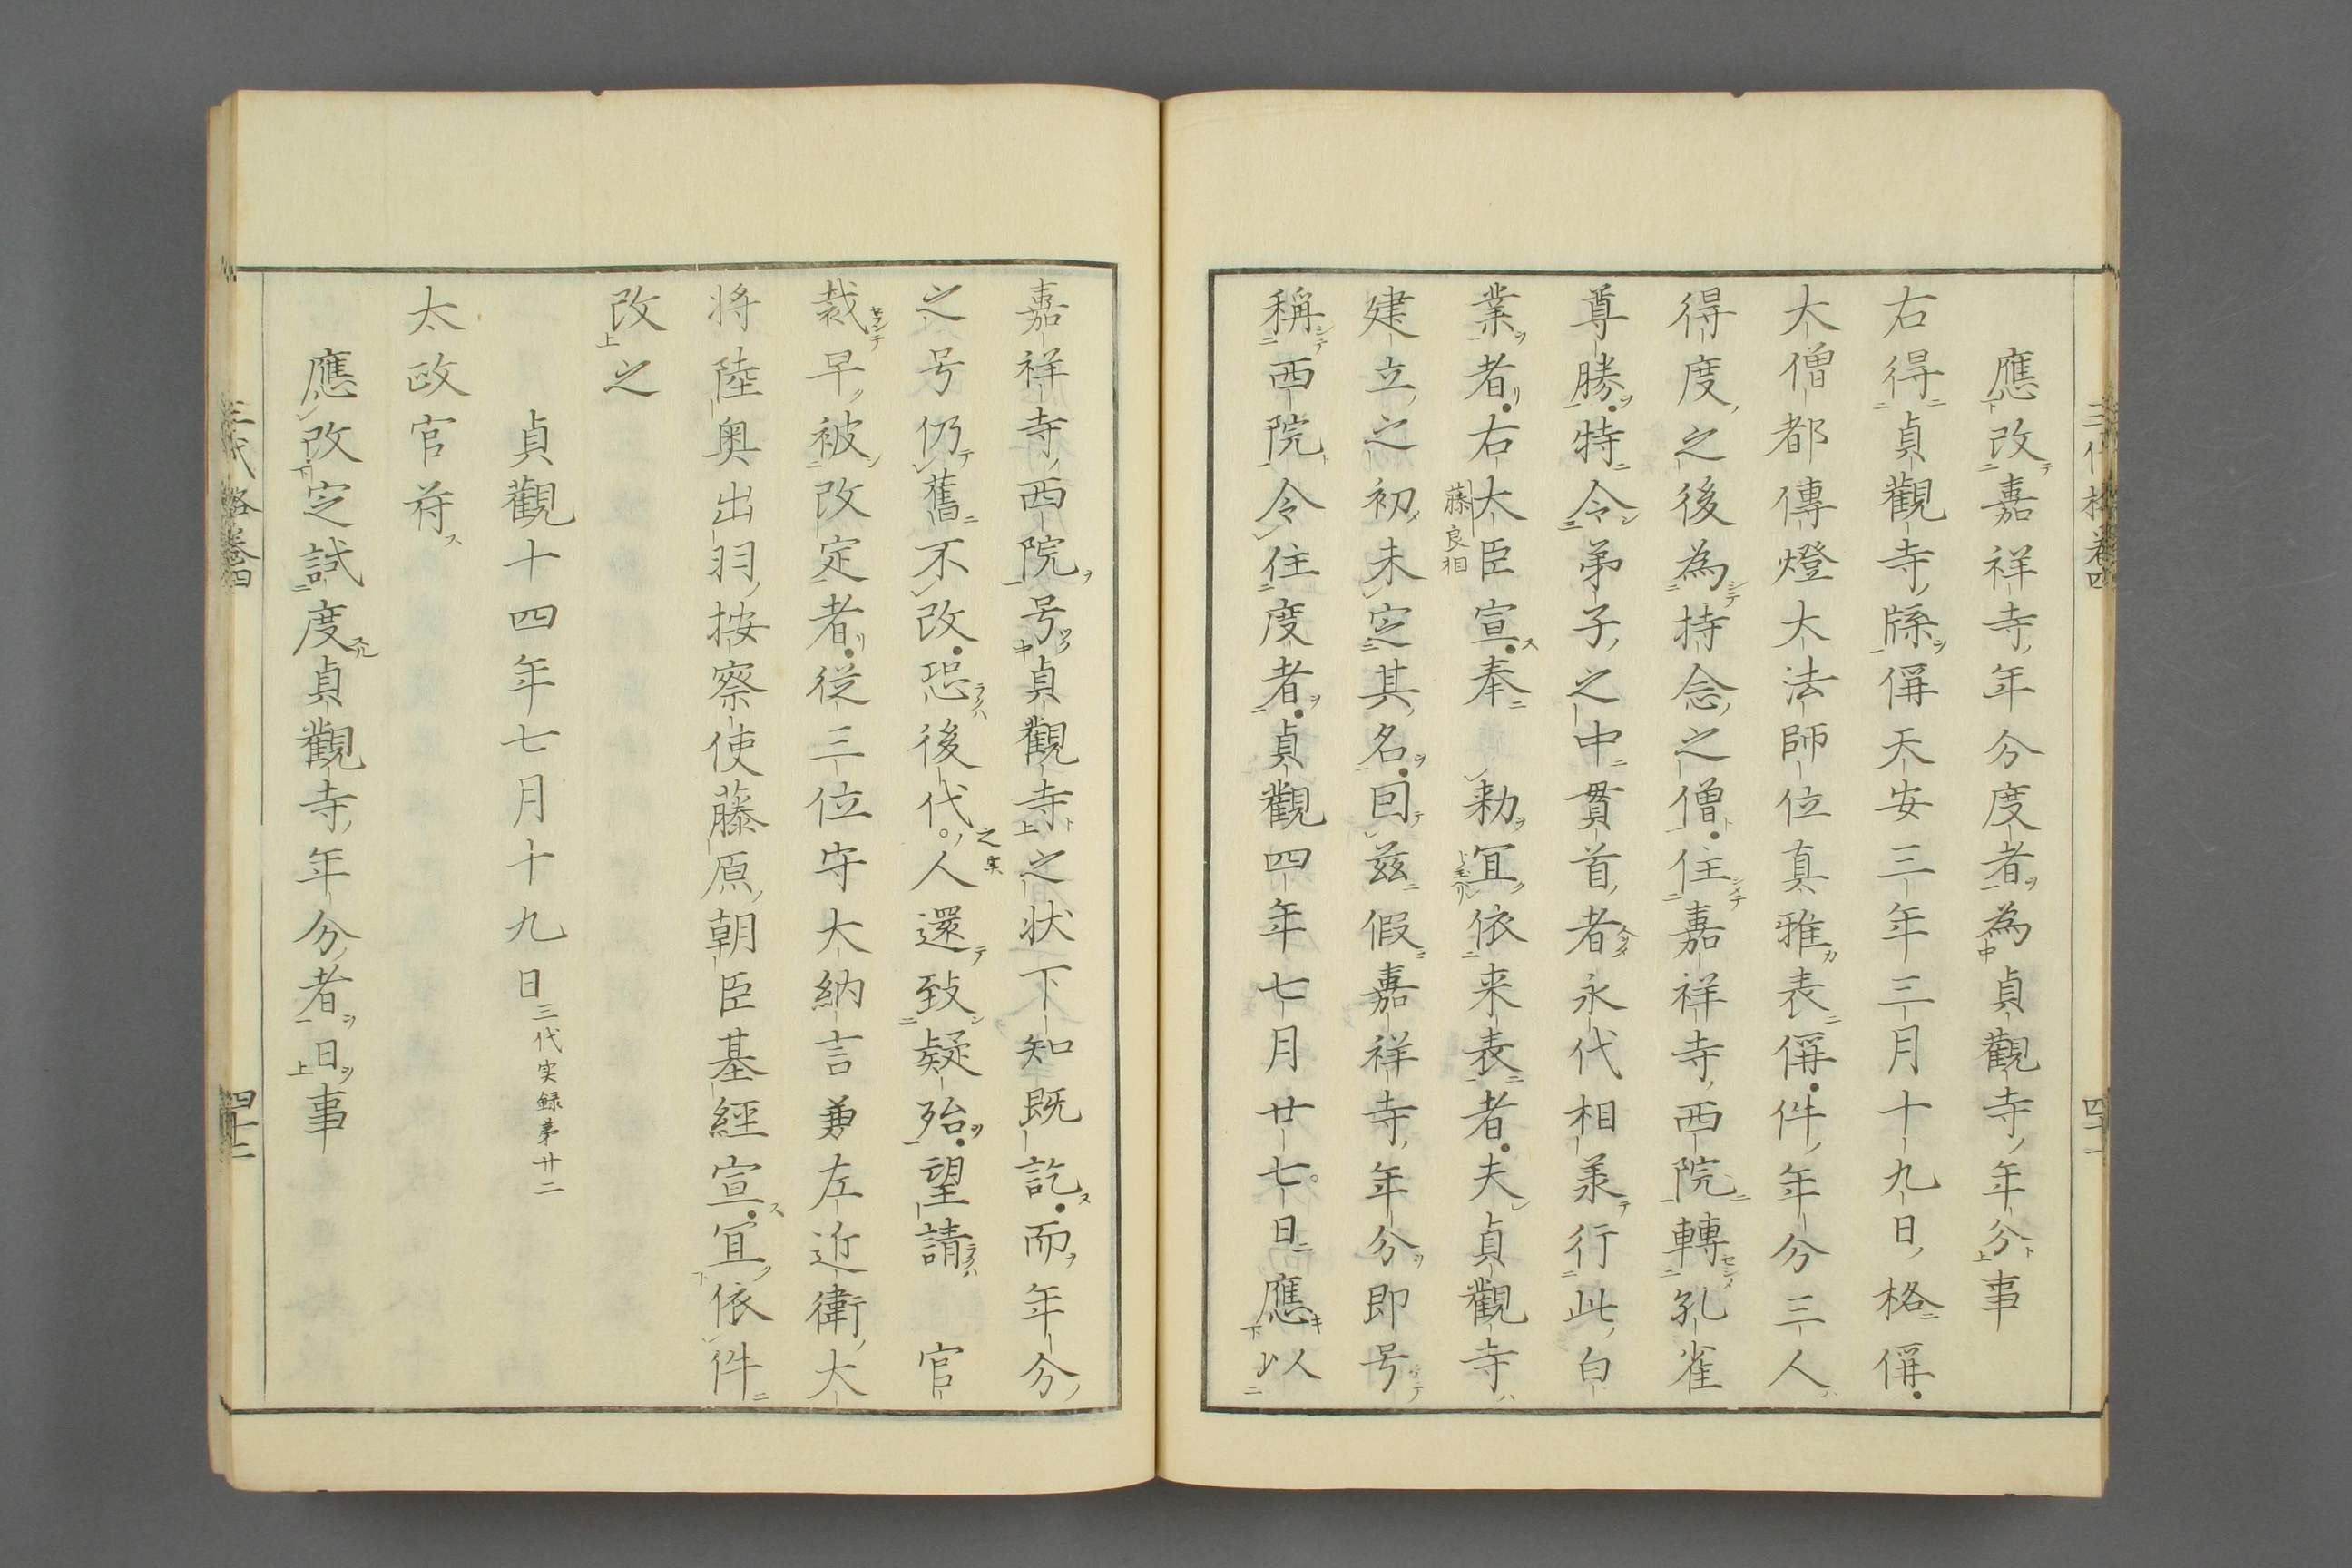 應改嘉祥寺年分度者為貞觀寺年分事
右得貞觀寺牒偁天安三年三月十九日格偁
大僧都傳燈大法師位真雅表偁件年分三人
得度之後為持念之僧住嘉祥寺西院轉孔雀
尊勝特令弟子之中貫首者永代相承行此白
業者右大臣宣奉　勅冝依来表者夫貞觀寺
藤良相
建立之初未㝎其名回茲假嘉祥寺年分即号
稱西院令住度者貞觀四年七月廿七日應以
嘉祥寺西院号貞觀寺之状下知既訖而年分
之号仍舊不改恐後代人還致疑殆望請　官
之実
裁早被改定者従三位守大納言兼左近衛大
将陸奥出羽按察使藤原朝臣基經宣冝依件
改之
貞觀十四年七月十九日三代実録第廿二
太政官符
應改㝎試度貞觀寺年分者日事
三代格卷四
四十一
三代格卷四
四十二